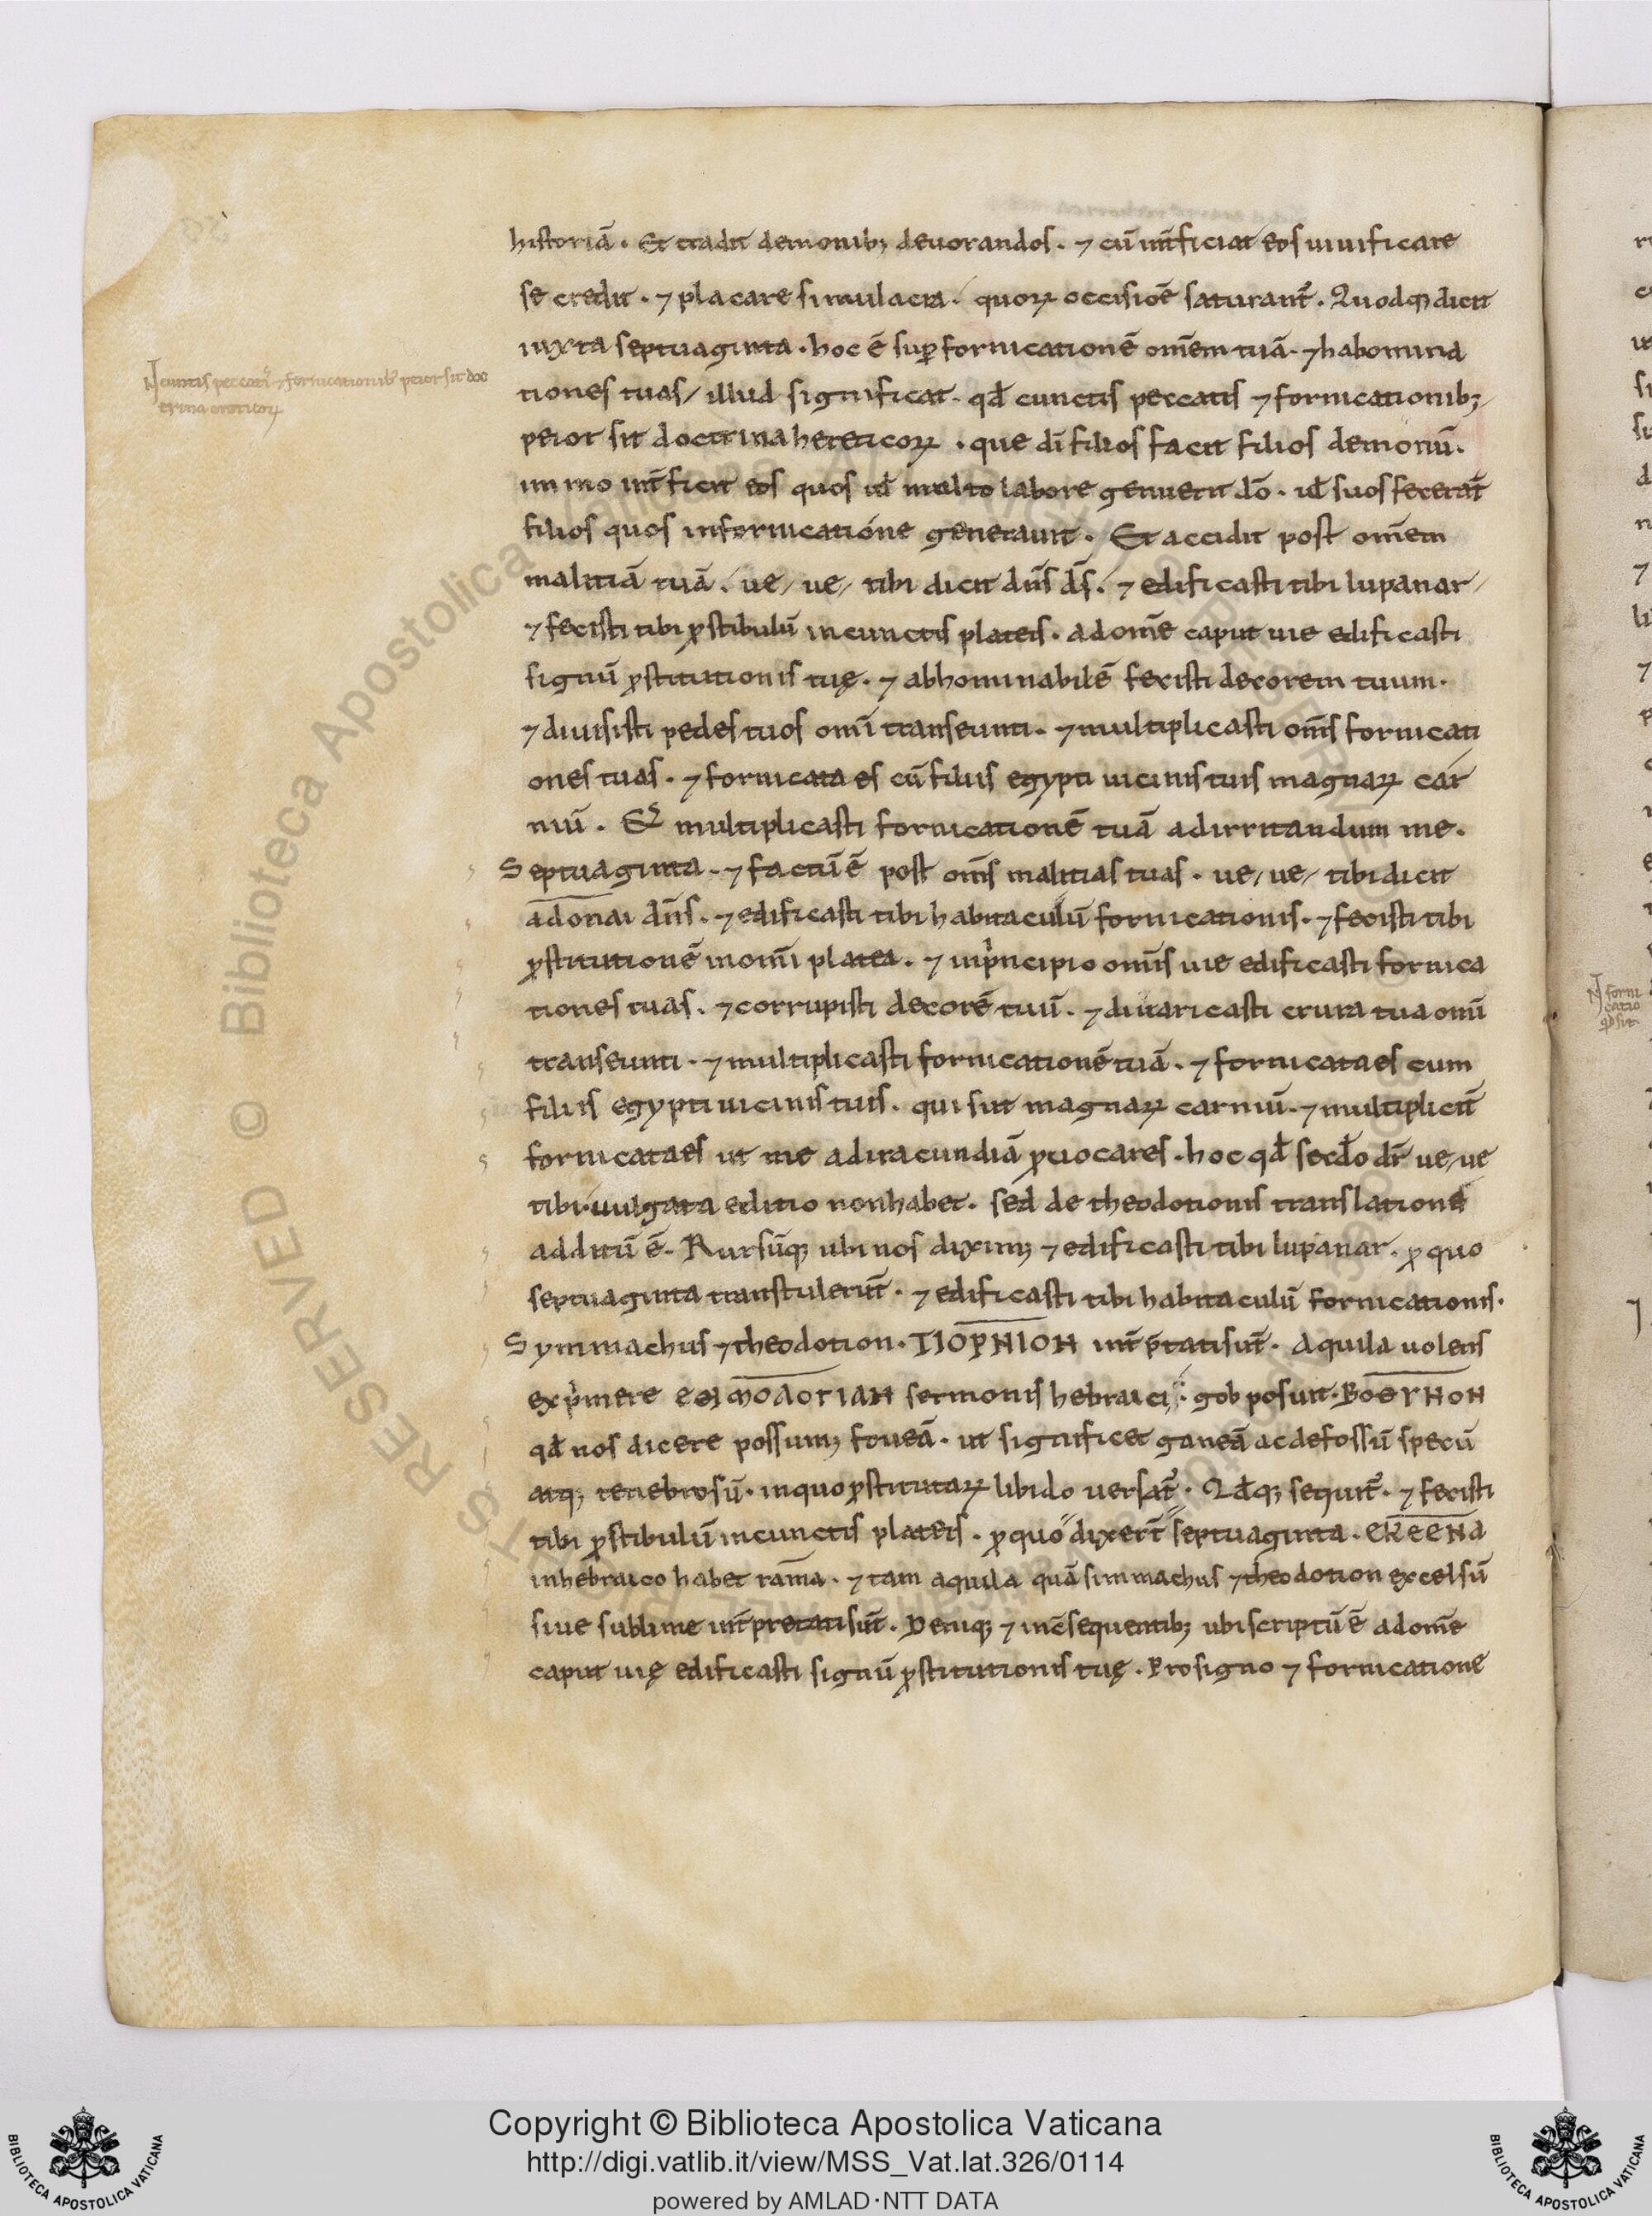 historiā. Et tradit demonib; deuorandos. ⁊ cū int̄ficiat eos uiuificare
se credit. ⁊ placare simulacra. quoꝝ occisiōe saturant̄. Quodq; dicit
iuxta septuaginta. hoc ē suꝑ fornicationē om̄em tuā. ⁊ habomina
tiones tuas/ illud significat. qđ cunctis peccatis ⁊ fornicationib;
Ɲ cuntis peccatis ⁊ fornicationib; peior sit doc
trina ereticoꝝ
peior sit doctrina hereticoꝝ. que dī filios facit filios demonū.
immo int̄ficit eos quos cū multo labore genuerit dō. id suos fecerat̄
filios quos in fornicatióne generauit. Et accidit post om̄em
malitiā tuā. ue/ ue/ tibi dicit dn̄s ds̄. ⁊ edificasti tibi lupanar/
⁊ fecisti tibi ꝓstibulū in cunctis plateis. ad om̄e caput uie edificasti
signū ꝓstitutionis tuę. ⁊ abhominabilē fecisti decorem tuum.
⁊ diuisisti pedes tuos om̄i transeunti. ⁊ multiplicasti om̄s fornicati
ones tuas. ⁊ fornicata es cū filiis egypti uicinis tuis magnaꝝ car
niū. Et multiplicasti fornicationē tuā ad irritandum me.
Septuaginta. ⁊ factū ē post om̄s malitias tuas. ue/ ue/ tibi dicit
adonai dn̄s. ⁊ edificasti tibi habitaculū fornicationis. ⁊ fecisti tibi
ꝓstitutionē in om̄i platea. ⁊ in pͥncipio om̄is uie edificasti fornica
tiones tuas. ⁊ corrupisti decorē tuū. ⁊ diuaricasti crura tua om̄i
transeunti. ⁊ multiplicasti fornicationē tuā. ⁊ fornicata es cum
filiis egypti uicinis tuis. qui sūt magnaꝝ carniū. ⁊ multiplicit̄
fornicata es ut me ad iracundiā ꝓuocares. hoc qđ secđo dr̄ ue/ ue
tibi. uulgata editio non habet. sed de theodotionis translatione
additū ē. Rursūq; ubi nos diximꝯ ⁊ edificasti tibi lupanar. ꝓ quo
septuaginta transtulerūt̄. ⁊ edificasti tibi habitaculū fornicationis.
Symmachus ⁊ theodotion. ΠΟΡΝΙΟΝ int̄ p̄tati sūt̄. Aquila uolens
expͥmere ΕΘΙΜΟΛΟΓΙΑΝ sermonis hebraici. gob posuit. ΒΟΘΥΝΟΝ
qđ nos dicere possumꝯ foueā. ut significet ganeā ac defossū specū
atq; tenebrosū. in quo ꝓstitutaꝝ libido uersat̄. Qđq; sequit̄. ⁊ fecisti
tibi ꝓstibulū in cunctis plateis. ꝓ quo dixer̄t septuaginta. ΕΚΘΕΝΑ
in hebraico habet rāma. ⁊ tam aquila quā simmachus ⁊ theodotion excelsū
siue sublime int̄pretati sūt̄. Deniq; ⁊ in c̄sequentib; ubi scriptū ē ad om̄e
caput uię edificasti signū ꝓstitutionis tuę. Pro signo ⁊ fornicatione
Copyright © Biblioteca Apostolica Vaticana
http://digi.vatlib.it/view/MSS_Vat.lat.326/0114
powered by AMLAD·NTT DATA